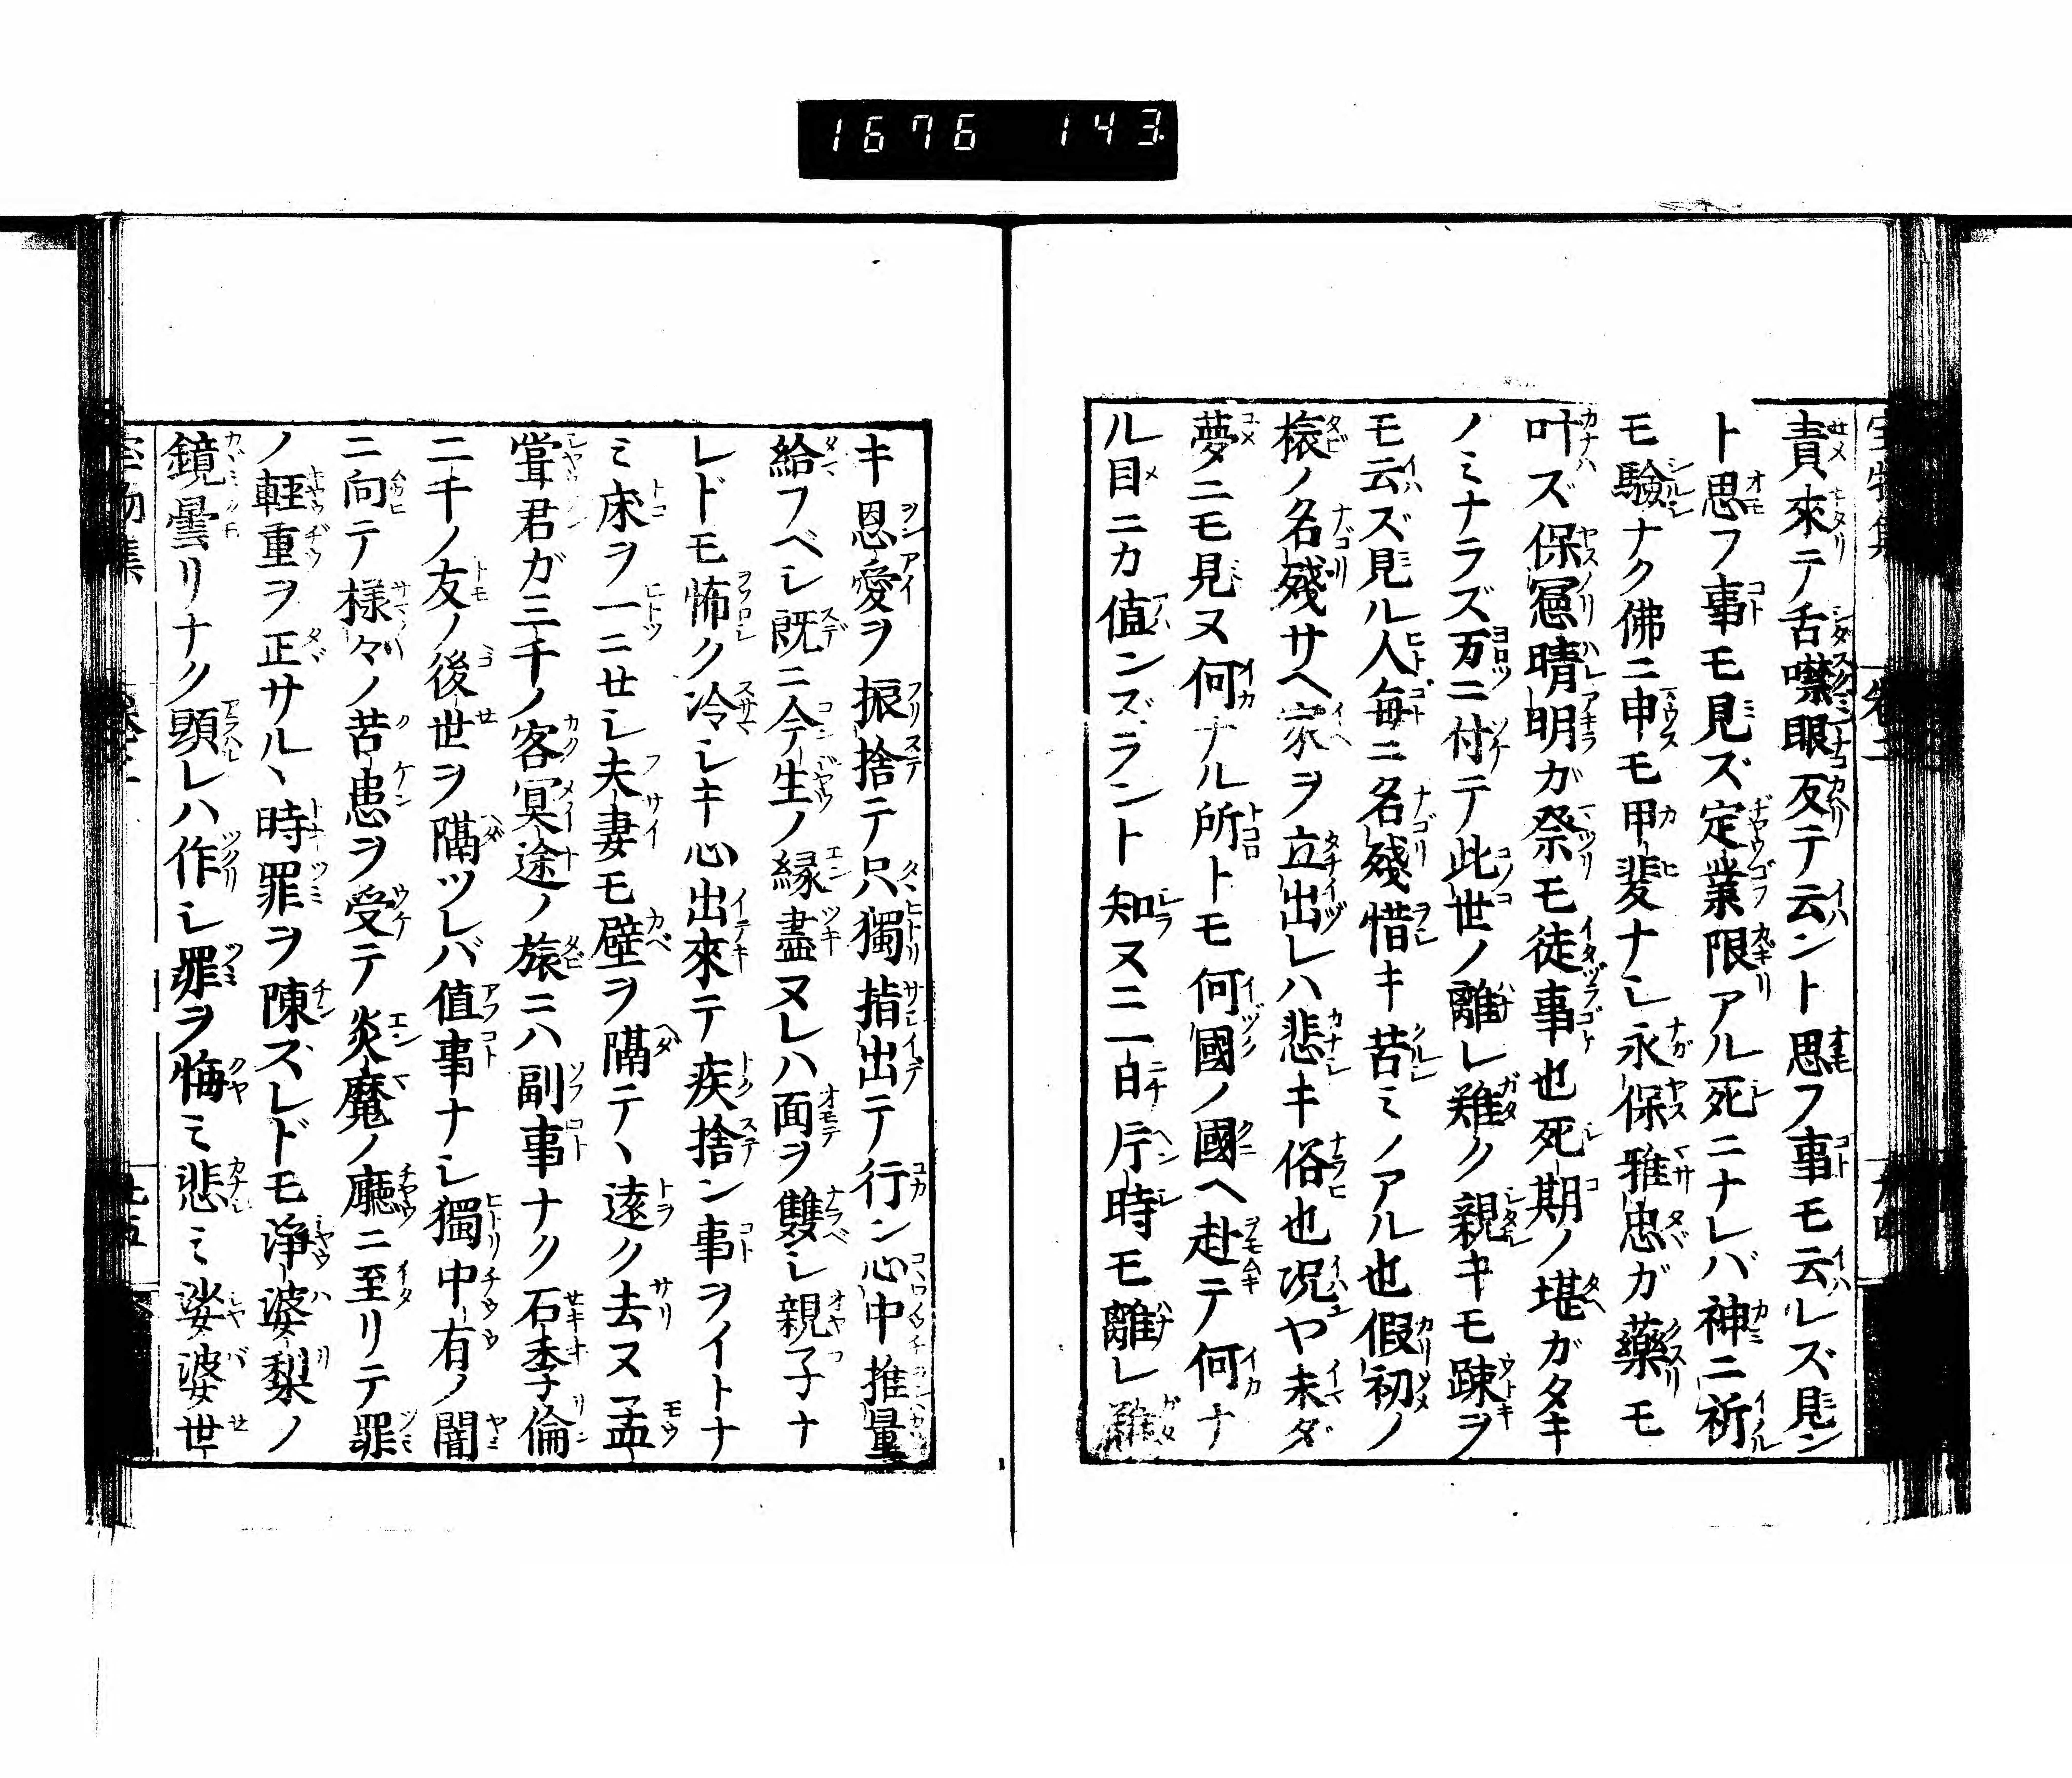 1676 143
責來テ舌噤眼反テ云ント思フ事モ云レズ見ン
ト思フ事モ見ズ定業限アル死ニナレバ神ニ祈
モ驗ナク佛ニ申モ甲斐ナシ永保雅忠ガ藥モ
叶ズ保憲晴明ガ祭モ徒事也死期ノ堪ガタキ
ノミナラズ万ニ付テ此世ノ離レ難ク親キモ疎ヲ
モ云ズ見ル人毎ニ名殘惜キ苦ミノアル也假初ノ
旅ノ名殘サヘ家ヲ立出レハ悲キ俗也况ヤ未ダ
夢ニモ見ヌ何ナル所トモ何國ノ國ヘ赴テ何ナ
ル目ニカ値ンズラント知ヌニ一日片時モ離レ難
キ恩愛ヲ振捨テ只獨指出テ行ン心中推量
給フベシ既ニ今生ノ縁盡ヌレハ面ヲ雙シ親子ナ
レドモ怖ク冷シキ心出來テ疾捨ン事ヲイトナ
ミ床ヲ一ニセシ夫妻モ壁ヲ隔テヽ遠ク去ヌ孟
甞君ガ三千ノ客冥途ノ旅ニハ副事ナク石季倫
二千ノ友ノ後世ヲ隔ツレバ値事ナシ獨中有ノ闇
ニ向テ様々ノ苦患ヲ受テ炎魔ノ廳ニ至リテ罪
ノ輕重ヲ正サルヽ時罪ヲ陳ズレドモ淨婆梨ノ
鏡曇リナク顯レハ作シ罪ヲ悔ミ悲ミ娑婆世